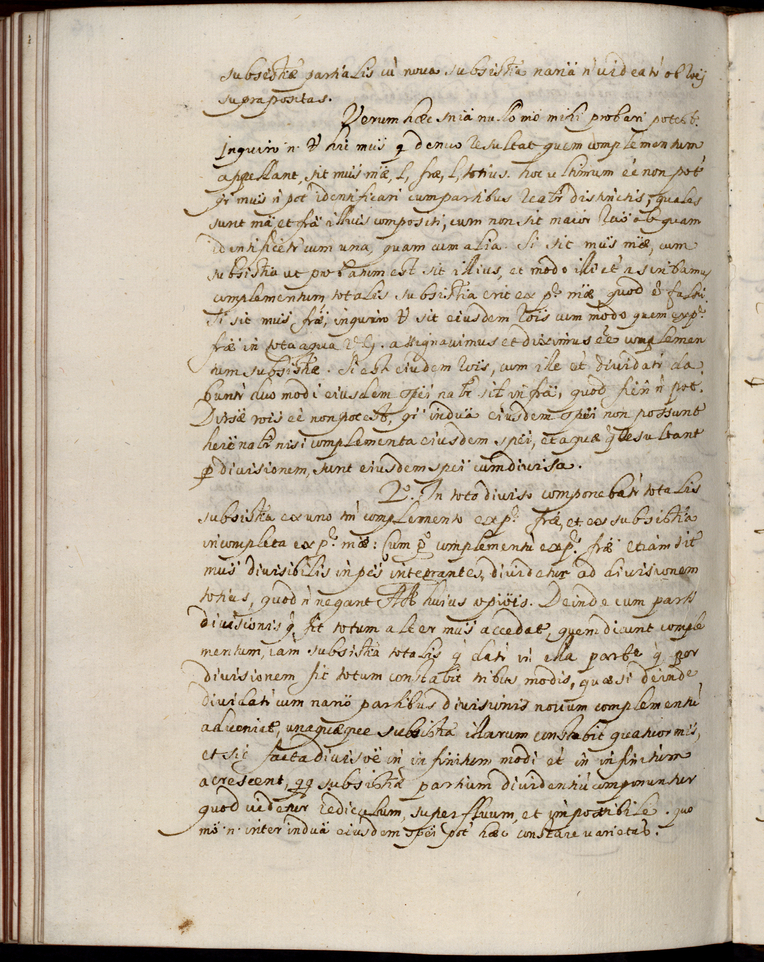 subsisthæ partialis ut nova subsistha naria n̄ videati ob rōes
suprapositas.
Verum hæc snīa nullo mō mihi probari potest.
Inquiro n. V hic mus q denuo resultat quem complementum
appellant, sit mus māe, l, frāe, l, totius. hoc ultimum eē non pōt
qi mus n̄ pōt identificari cum partibus realr distinctis, quales
sunt mā et frā illius compositi, cum non sit maior ratio ob quam
identificetr cum una, quam cum alia. Si sit mus māe, cum
subsistha ut probatum est sit illius, et modo illi et ascribamus
complementum totalis subsistha erit ex pe māe quod est falsum.
Si sit mus frāe, inquiro V sit eiusdem rōis cum modo quem ex pe
frāe in tota aqua assignavimus et diximus esse complemen
tum subsisthæ. Si est eiusdem rōis, cum ille et dividatr da
buntr duo modi eiusdem spēi natr sil in frā, quod fieri n̄ pōt.
Diversæ rōis eē non potest, qi indiva eiusdem spēi non possunt
here natr nisi complementa eiusdem spēi, et aquæ q resultant
p divisionem, sunt eiusdem spēi cum divisa.
2o. In toto diviso componebatr totalis
subsistha ex uno tm complemento ex pe frāe, et ex subsistha
incompleta ex pe māe: Cum ergo complementū ex pe frāe etiam sit
mus divisibilis in ptes integrantes, dividetur ad divisionem
totius, quod n̄ negant AA huius opiōis. Deinde cum parti
divisionis q fit totum alter mus accedat, quem dicunt comple
mentum, iam subsistha totalis q datr in illa parte q per
divisionem fit totum constabit tribus modis, quæ si deinde
dividatr cum nario partibus divisionis novum complementū
adveniat, unaquæque subsistha illarum constabit quatuor mis,
et sic facta divisiōe in infinitum modi et in infinitum
acrescent, qq subsisthæ partium dividentiū componuntur
quod videtur rediculum, superfluum, et impossibile. quo
mō n. inter indiva eiusdem spēi pōt hæc constare varietas.